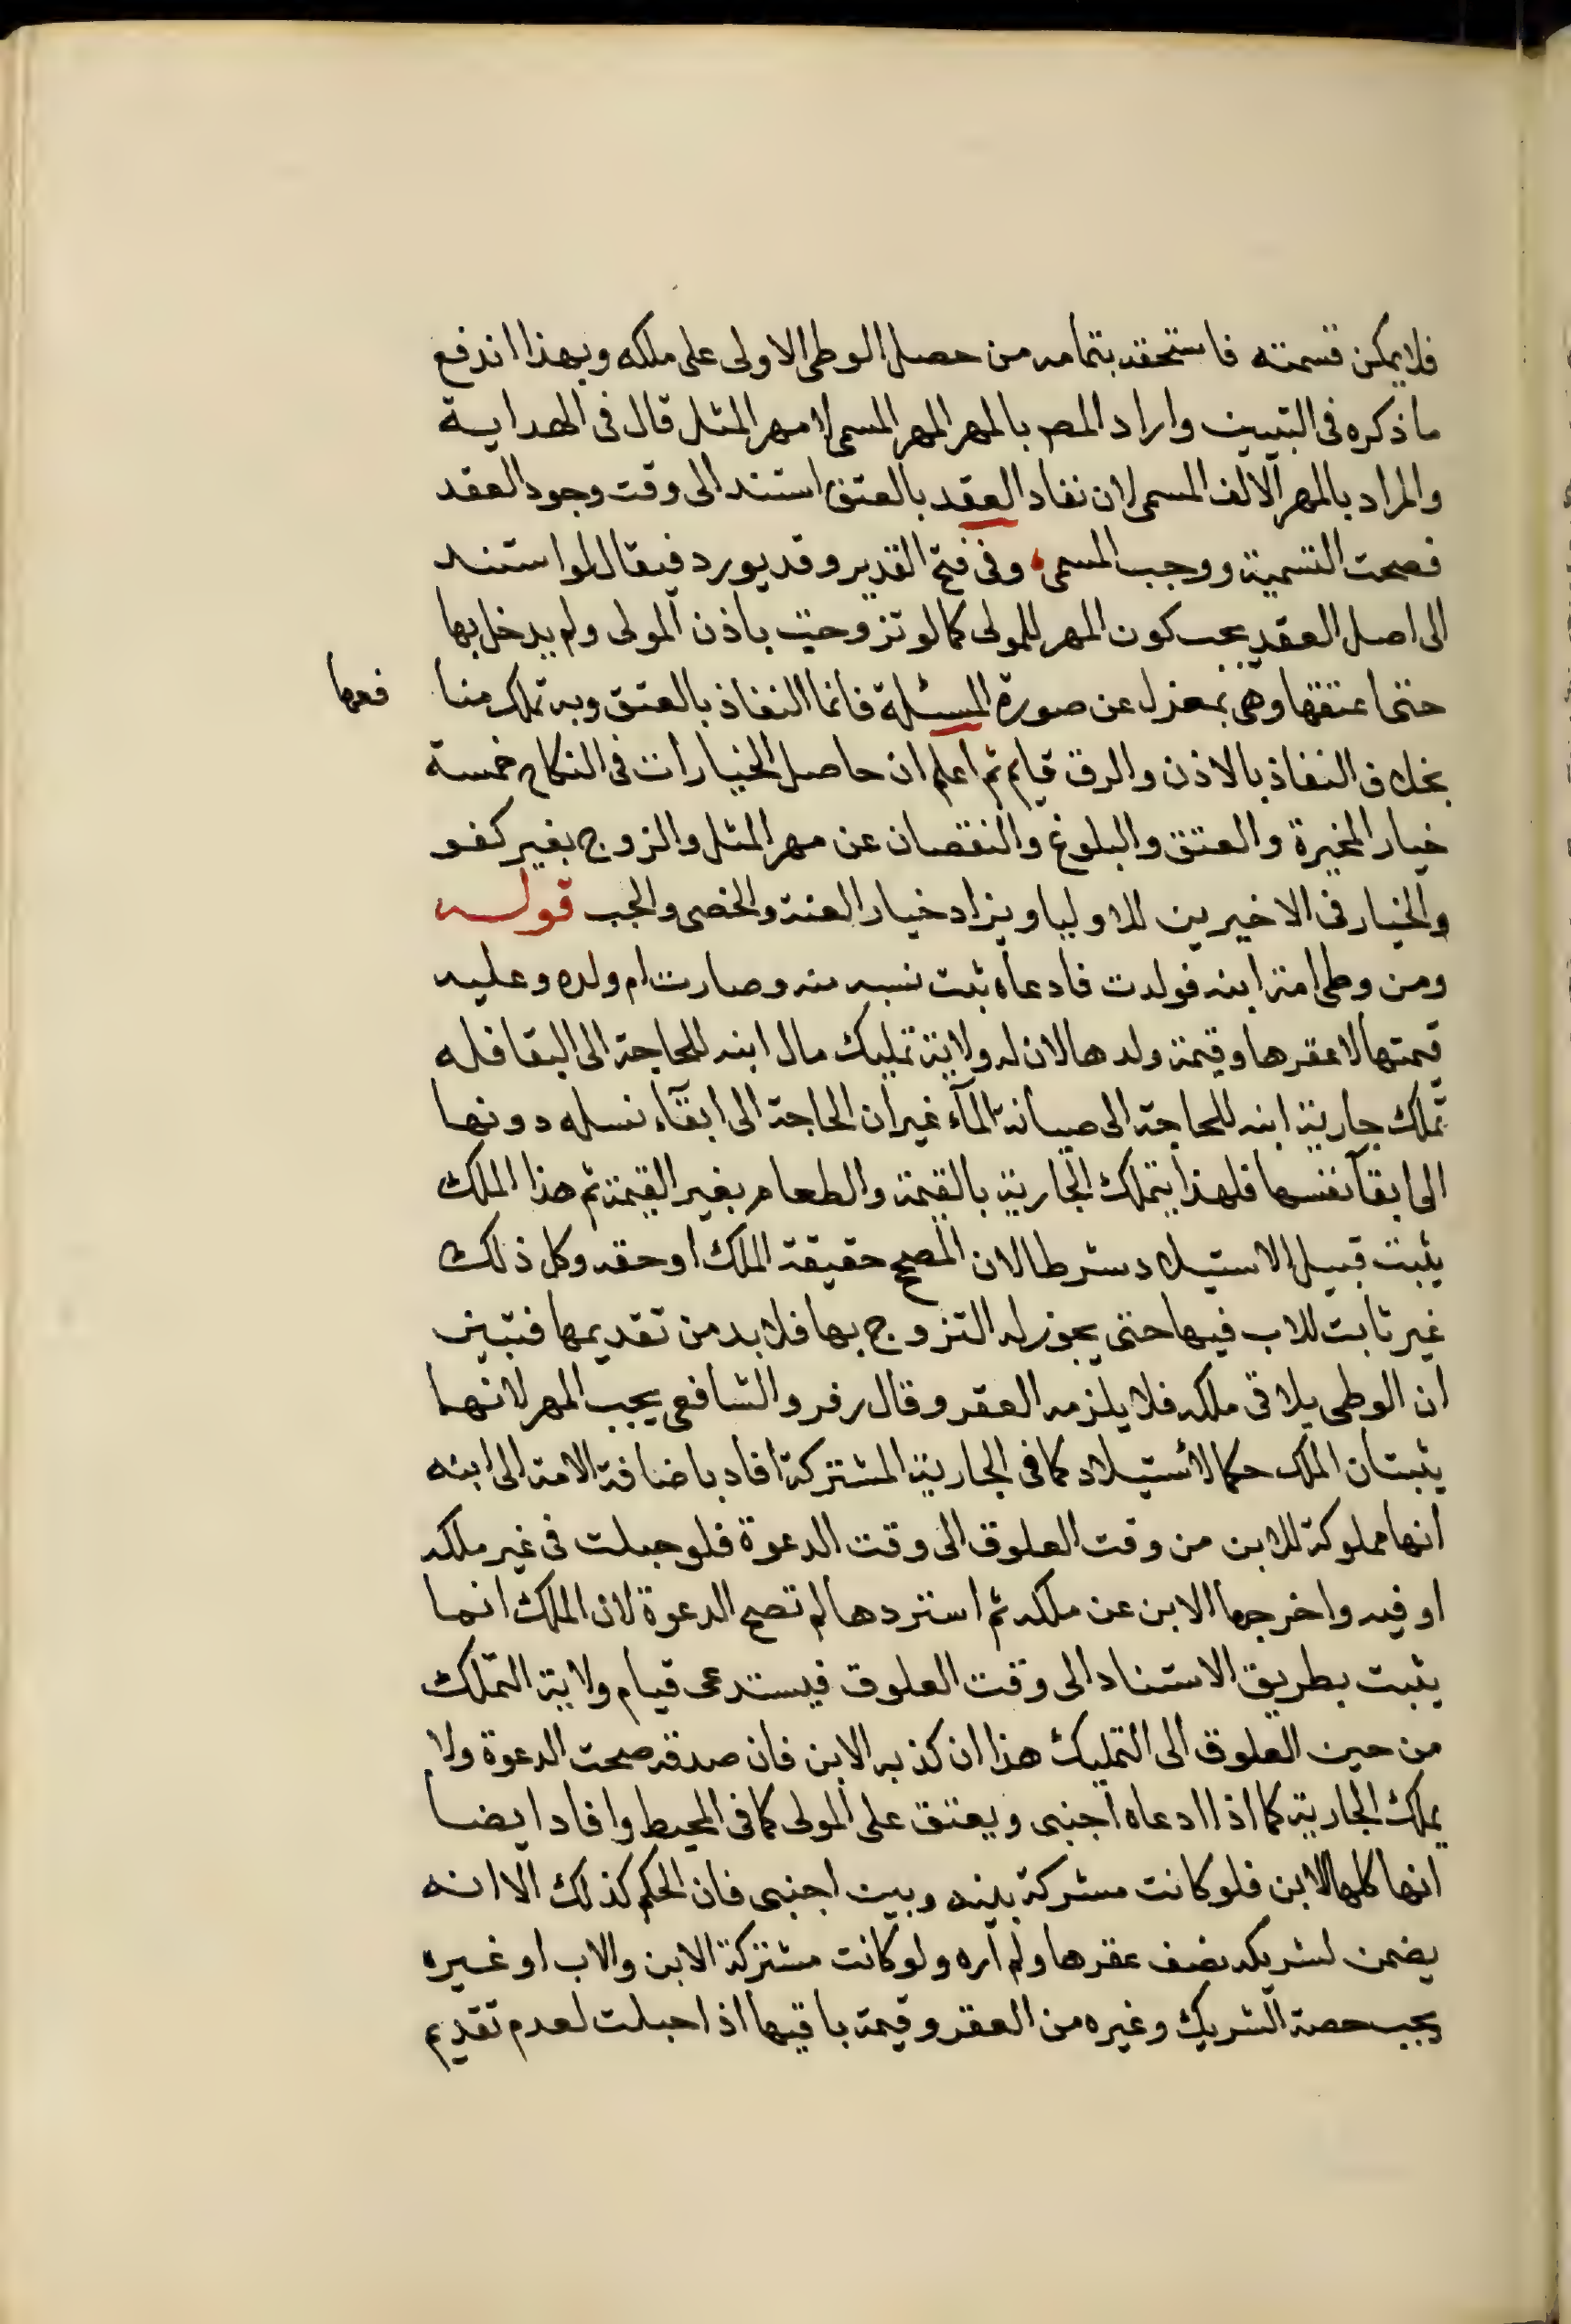 فلا يمكن قسمته فاستحقه بتمامه من حصل الوطى الاولى على ملكه وبهذا اندفع
ما ذكره فى التبيين واراد المصـ بالمهر المهر المسمى لا مهر المثل قال فى الهداية
والمراد بالمهر الالف المسمى لان نفاد العقد بالعتق استند الى وقت وجود العقد
فصحت التسمية ووجب المسمى وفى فتح القدير وقد يورد فيقال لو استند
الى اصل العقد يجب كون المهر للمولى كما لو تزوجت باذن المولى ولم يدخل بها
حتى اعتقها وهى بمعزل عن صورة المسئلة فانما النفاذ بالعتق وبه تملك منا فعها
بخلاف النفاذ بالاذن والرق قايم ثم اعلم ان حاصل الخيارات فى النكاح خمسة
خيار المخيرة والعتق والبلوغ والنقصان عن مهر المثل والزوج بغير كفو
والخيار فى الاخيرين للاوليا ويزاد خيار العنة والخصى والجب قوله
ومن وطى امة ابنه فولدت فادعاه ثبت نسبه منه وصارت ام ولده وعليه
قيمتها لا عقرها وقيمة ولدها لان له ولاية تمليك مال ابنه للحاجة الى البقا فله
تملك جارية ابنه للحاجة الى صيانة المآء غير ان الحاجة الى ابقآء نسله دونها
الى ابقآ نفسها فلهذا يتملك الجارية بالقيمة والطعام بغير القيمة ثم هذا الملك
يثبت قبيل الاستيلاد شرطا لان المصحح حقيقة الملك او حقه وكل ذلك
غير ثابت للاب فيها حتى يجوز له التزوج بها فلا بد من تقديمها فتبين
ان الوطى يلاقى ملكه فلا يلزمه العقر وقال زفر والشافعى يجب المهر لانهما
يثبتان الملك حكما لأستيلاد كما فى الجارية المشتركة افاد باضافة الامة الى ابنه
انها مملوكة للابن من وقت العلوق الى وقت الدعوة فلو حبلت فى غير ملكه
او فيه واخرجها الابن عن ملكه ثم استردها لم تصح الدعوة لان الملك انما
يثبت بطريق الاستناد الى وقت العلوق فيستدعى قيام ولاية التملك
من حين العلوق الى التمليك هذا ان كذبه الابن فان صدقه صحت الدعوة ولا
يملك الجارية كما اذا ادعاه اجنبى ويعتق على المولى كما فى المحيط وافاد ايضا
انها كلها للابن فلو كانت مشركة بينه وبين اجنبى فان الحكم كذلك الا انه
يضمن لشريكه نصف عقرها ولم اره ولو كانت مشتركة الابن والاب او غيره
يجب حصة الشريك وغيره من العقر وقيمة باقيها اذا حبلت لعدم تقديم